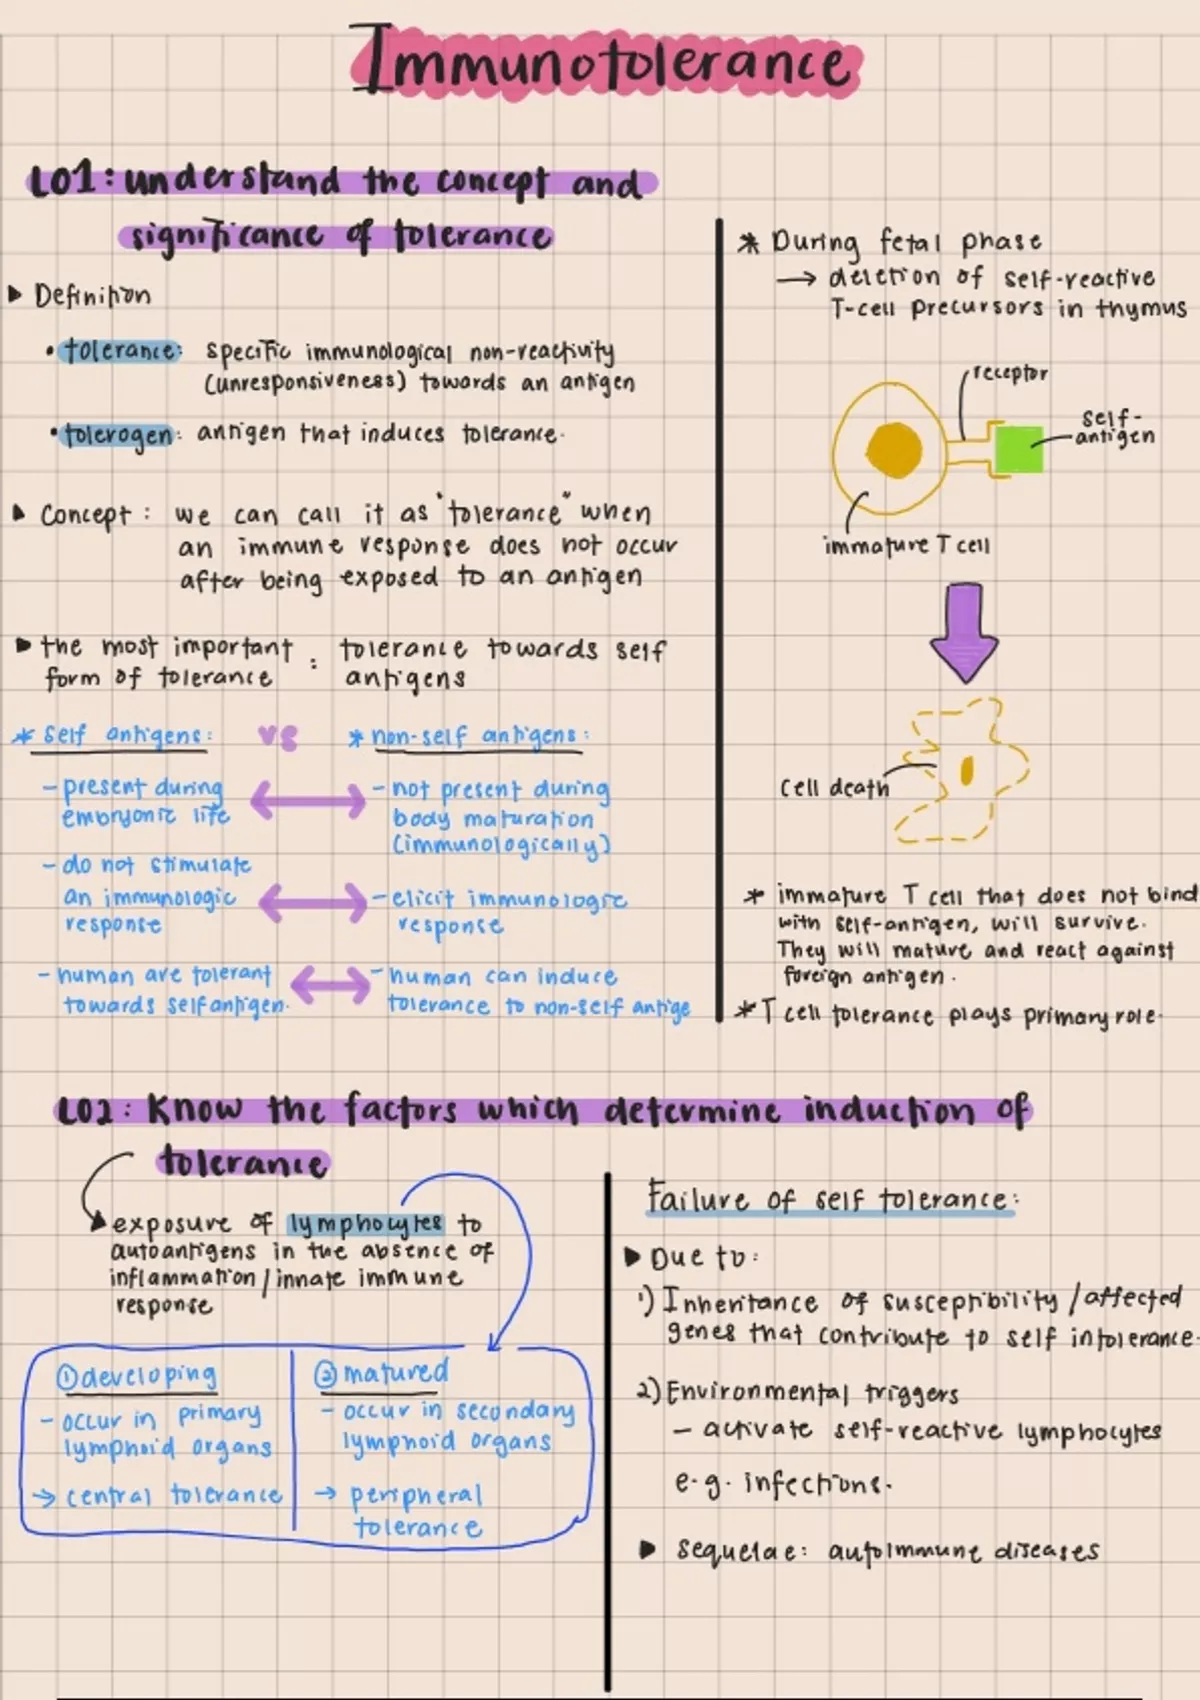 Immunotolerance
LO1: understand the concept and
significance of tolerance
▶ Definition
• tolerance: specific immunological non-reactivity
(unresponsiveness) towards an antigen
• tolerogen: antigen that induces tolerance.
▶ Concept: we can call it as "tolerance" when
an immune response does not occur
after being exposed to an antigen
▶ the most important : tolerance towards self
form of tolerance antigens
* self antigens: vs * non-self antigens:
- present during
embryonic life
- not present during
body maturation
(immunologically)
- do not stimulate
an immunologic
response
- elicit immunologic
response
- human are tolerant
towards self antigen.
- human can induce
tolerance to non-self antige
* During fetal phase
→ deletion of self-reactive
T-cell precursors in thymus
receptor
self-
antigen
immature T cell
cell death
* immature T cell that does not bind
with self-antigen, will survive.
They will mature and react against
foreign antigen.
* T cell tolerance plays primary role.
LO2: Know the factors which determine induction of
tolerance
exposure of lymphocytes to
autoantigens in the absence of
inflammation/innate immune
response
① developing
- occur in primary
lymphoid organs
→ central tolerance
② matured
- occur in secondary
lymphoid organs
→ peripheral
tolerance
Failure of self tolerance:
▶ Due to:
1) Inheritance of susceptibility/affected
genes that contribute to self intolerance.
2) Environmental triggers
- activate self-reactive lymphocytes
e.g. infections.
▶ sequelae: autoimmune diseases